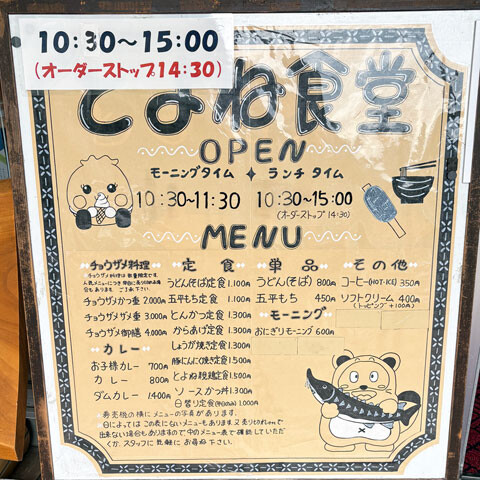 10:30～15:00
(オーダーストップ14:30)
とよね食堂
OPEN
モーニングタイム ✦ ランチ タイム
10:30~11:30 10:30~15:00
(オーダーストップ 14:30)
MENU
チョウザメ料理
チョウザメ料理は数量限定です。
チョウザメかつ重 2.000円
チョウザメザメ重 3.000円
チョウザメ御膳 4.000円
カレー
お子様カレー 700円
カレー 800円
ダムカレー 1.400円
定食
うどん(そば)定食 1.100円
五平もち定食 1.100円
とんかつ定食 1.300円
からあげ定食 1.300円
しょうが焼き定食 1.300円
豚にんにく焼き定食 1.500円
とよね穀鶏定食 1.500円
ソースかつ丼 1.300円
日替り定食(平日のみ) 1.000円
単品
うどん(そば) 800円
五平もち 450円
モーニング
おにぎりモーニング 600円
その他
コーヒー(HOT・ICE) 350円
ソフトクリーム 400円
(トッピング +100円)
券売機の横にメニューの写真があります。
日によってはこの表にないメニューもあります又売り切れorで
出来ない場合もありますので中のメニュー表で確認していただく
か、スタッフに気軽にお尋ね下さい。